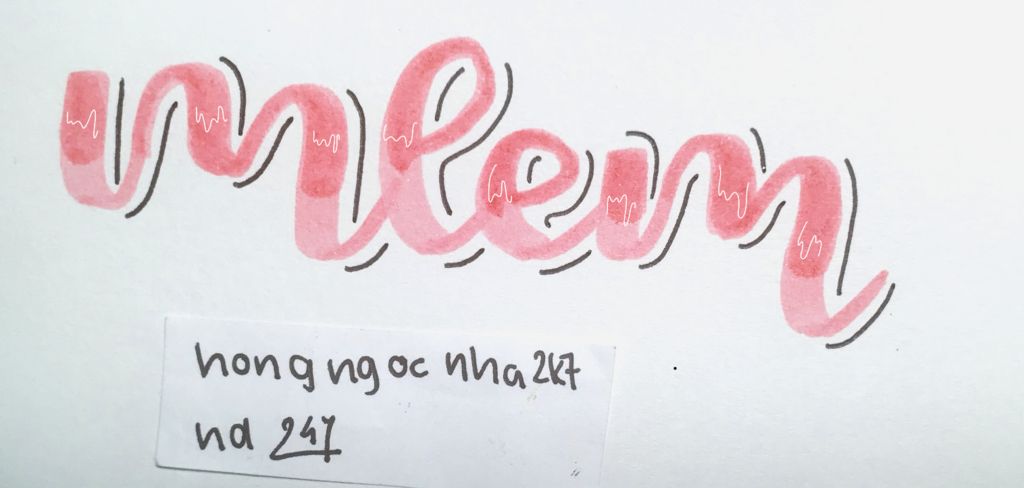 mlem
hongngoc nha 2k7
nd 247